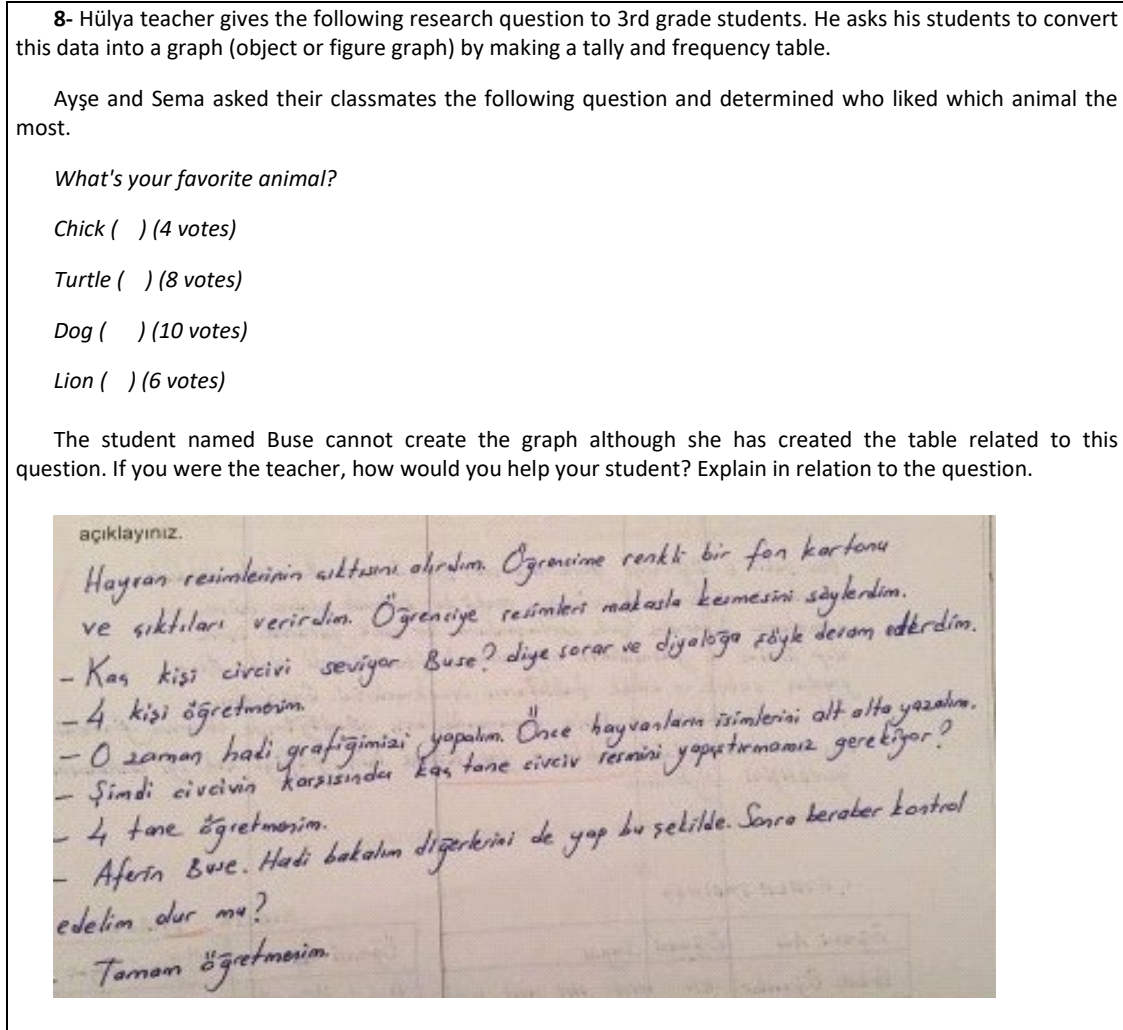 8- Hülya teacher gives the following research question to 3rd grade students. He asks his students to convert
this data into a graph (object or figure graph) by making a tally and frequency table.
Ayşe and Sema asked their classmates the following question and determined who liked which animal the
most.
What's your favorite animal?
Chick ( ) (4 votes)
Turtle ( ) (8 votes)
Dog ( ) (10 votes)
Lion ( ) (6 votes)
The student named Buse cannot create the graph although she has created the table related to this
question. If you were the teacher, how would you help your student? Explain in relation to the question.
açıklayınız.
Hayvan resimlerinin çıktısını alırdım. Öğrencime renkli bir fon kartonu
ve çıktıları verirdim. Öğrenciye resimleri makasla kesmesini söylerdim.
- Kaç kişi civcivi seviyor Buse? diye sorar ve diyaloğa şöyle devam ederdim.
- 4 kişi öğretmenim.
- O zaman hadi grafiğimizi yapalım. Önce hayvanların isimlerini alt alta yazalım.
- Şimdi civcivin karşısında kaç tane civciv resmini yapıştırmamız gerekiyor?
- 4 tane öğretmenim.
- Aferin Buse. Hadi bakalım diğerlerini de yap bu şekilde. Sonra beraber kontrol
edelim olur mu?
- Tamam öğretmenim.